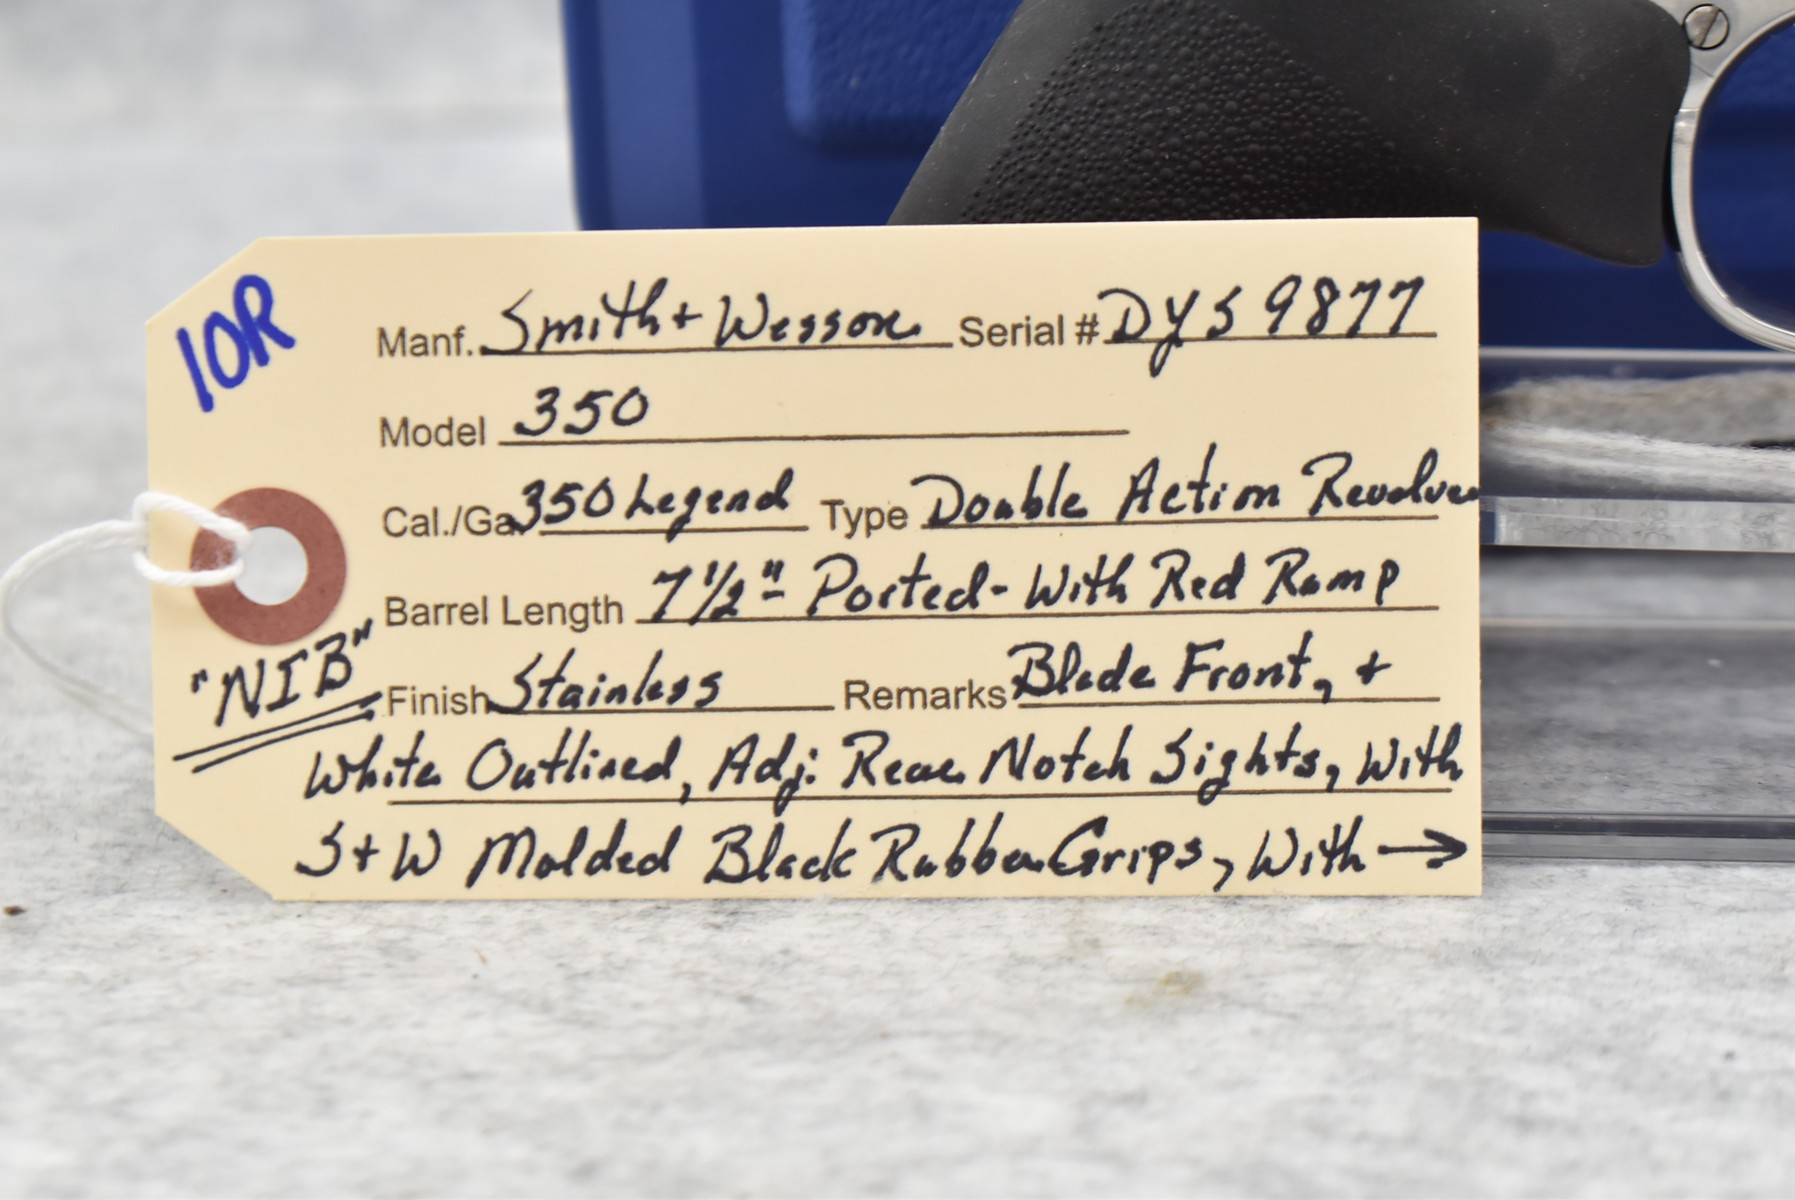 10R
Manf. Smith + Wesson Serial # DYS9877
Model 350
Cal./Ga. 350 Legend Type Double Action Revolver
Barrel Length 7 1/2" - Ported - With Red Ramp
"NIB"
Finish Stainless Remarks Blade Front, +
White Outlined, Adj. Rear Notch Sights, With
S+W Molded Black Rubber Grips, With →